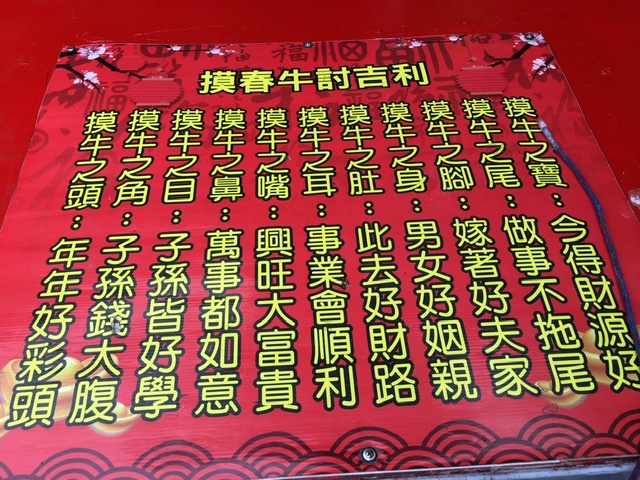 摸春牛討吉利
摸牛之頭：年年好彩頭
摸牛之角：子孫錢大腹
摸牛之目：子孫皆好學
摸牛之鼻：萬事都如意
摸牛之嘴：興旺大富貴
摸牛之耳：事業會順利
摸牛之肚：此去好財路
摸牛之身：男女好姻親
摸牛之腳：嫁著好夫家
摸牛之尾：做事不拖尾
摸牛之寶：今得財源好